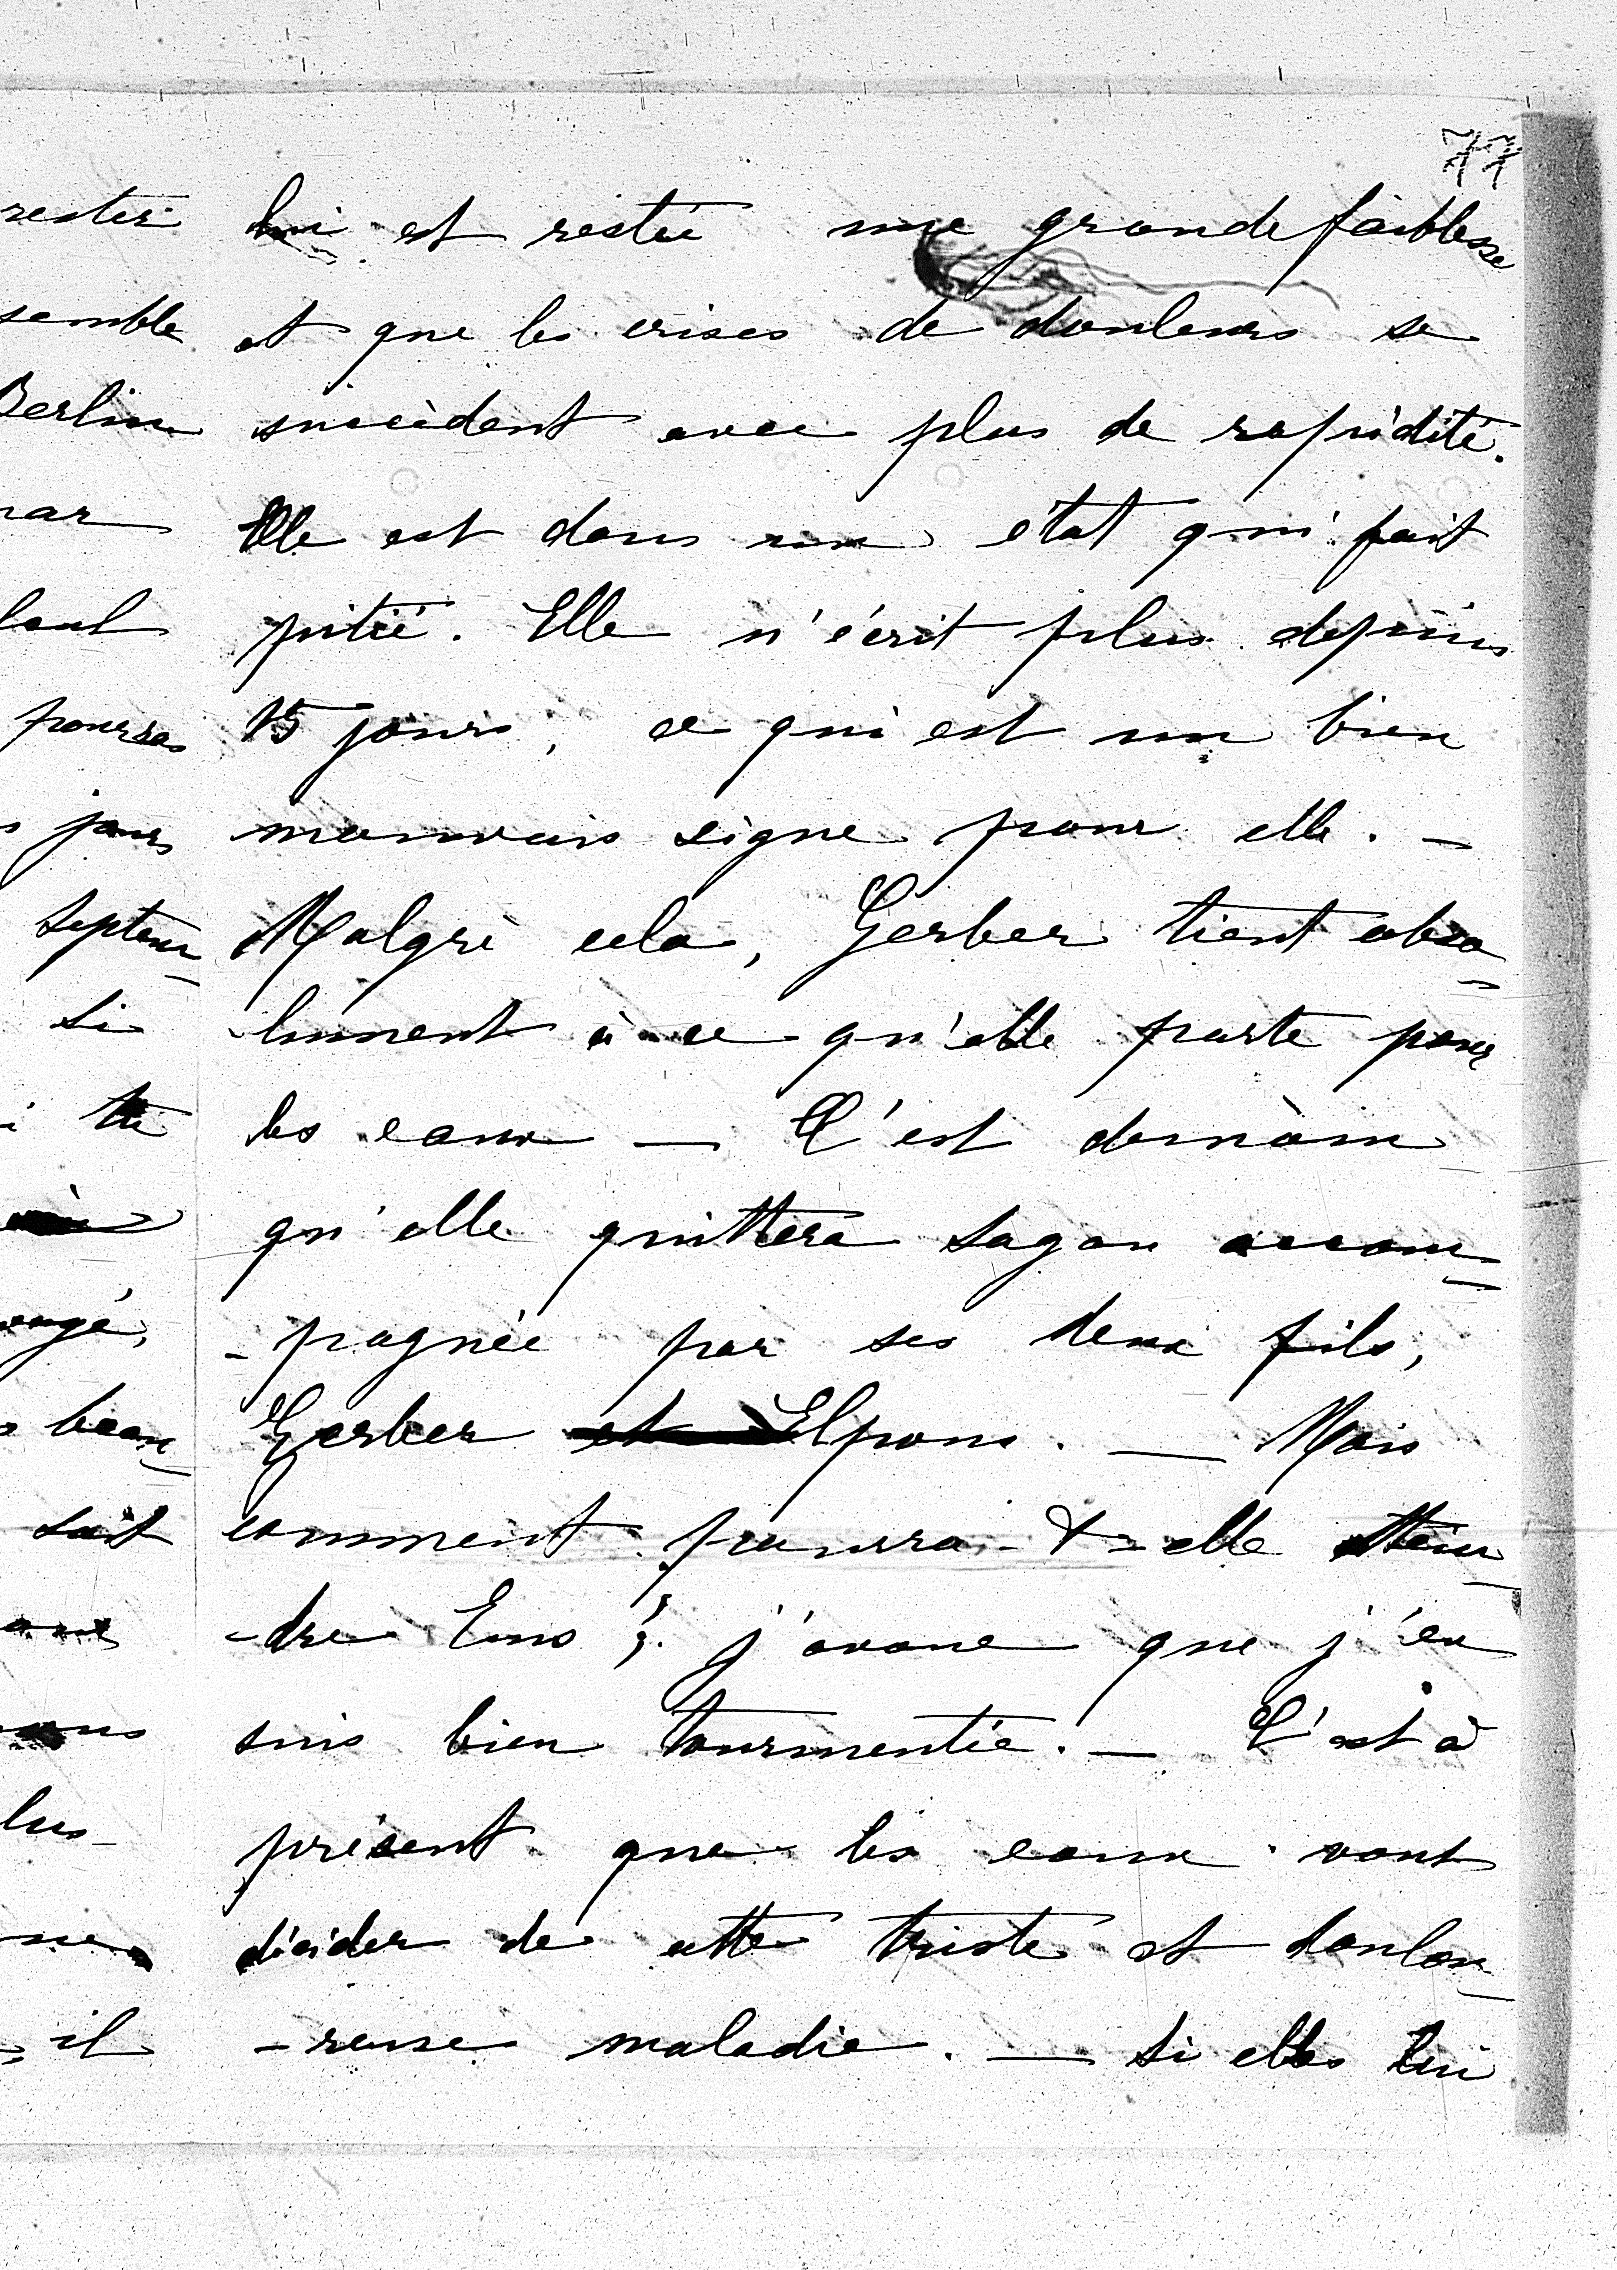 77
rester lui est restée une grande faiblesse
semble et que les crises de douleurs se
Berlin succèdent avec plus de rapidité.
Elle est dans un état qui fait
pitié. Elle n'écrit plus depuis
pourras 15 jours, ce qui est un bien
jours mauvais signe pour elle. —
septem- Malgré cela, Gerber tient abso-
si lument à ce qu'elle parte pour
tu les eaux — C'est demain
qu'elle quittera Sagan accom-
-pagnée par ses deux fils,
beau- Gerber et Elpons. — Mais
sait comment pourra-t-elle attein-
-dre Ems ; j'avoue que j'en
suis bien tourmentée. — C'est à
présent que les eaux vont
décider de cette triste et doulou-
il -reuse maladie. — Si elles lui